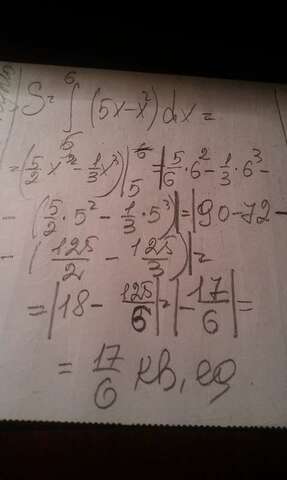 S = ∫₅⁶ (5x-x²)dx =
= (5/2 x² - 1/3 x³)|₅⁶ = |5/6 · 6² - 1/3 · 6³ -
- (5/2 · 5² - 1/3 · 5³)| = |90-72-
- (125/2 - 125/3)| =
= |18 - 125/6| = |-17/6| =
= 17/6 кв, ед.